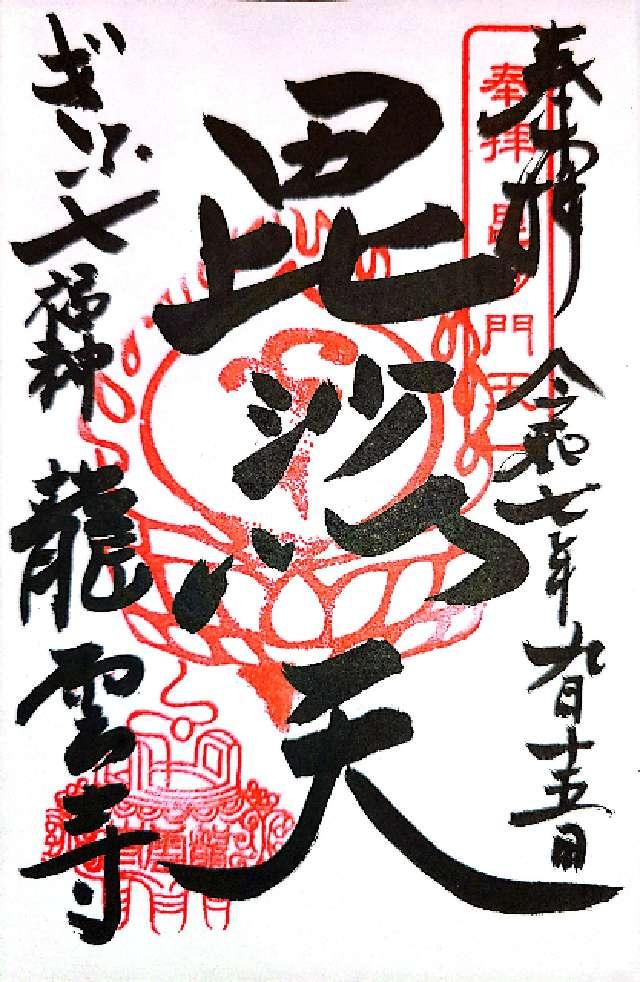 奉拝 令和七年九月十五日
奉拝 毘沙門天
毘沙門天
ぎふ七福神 龍雲寺
龍雲寺